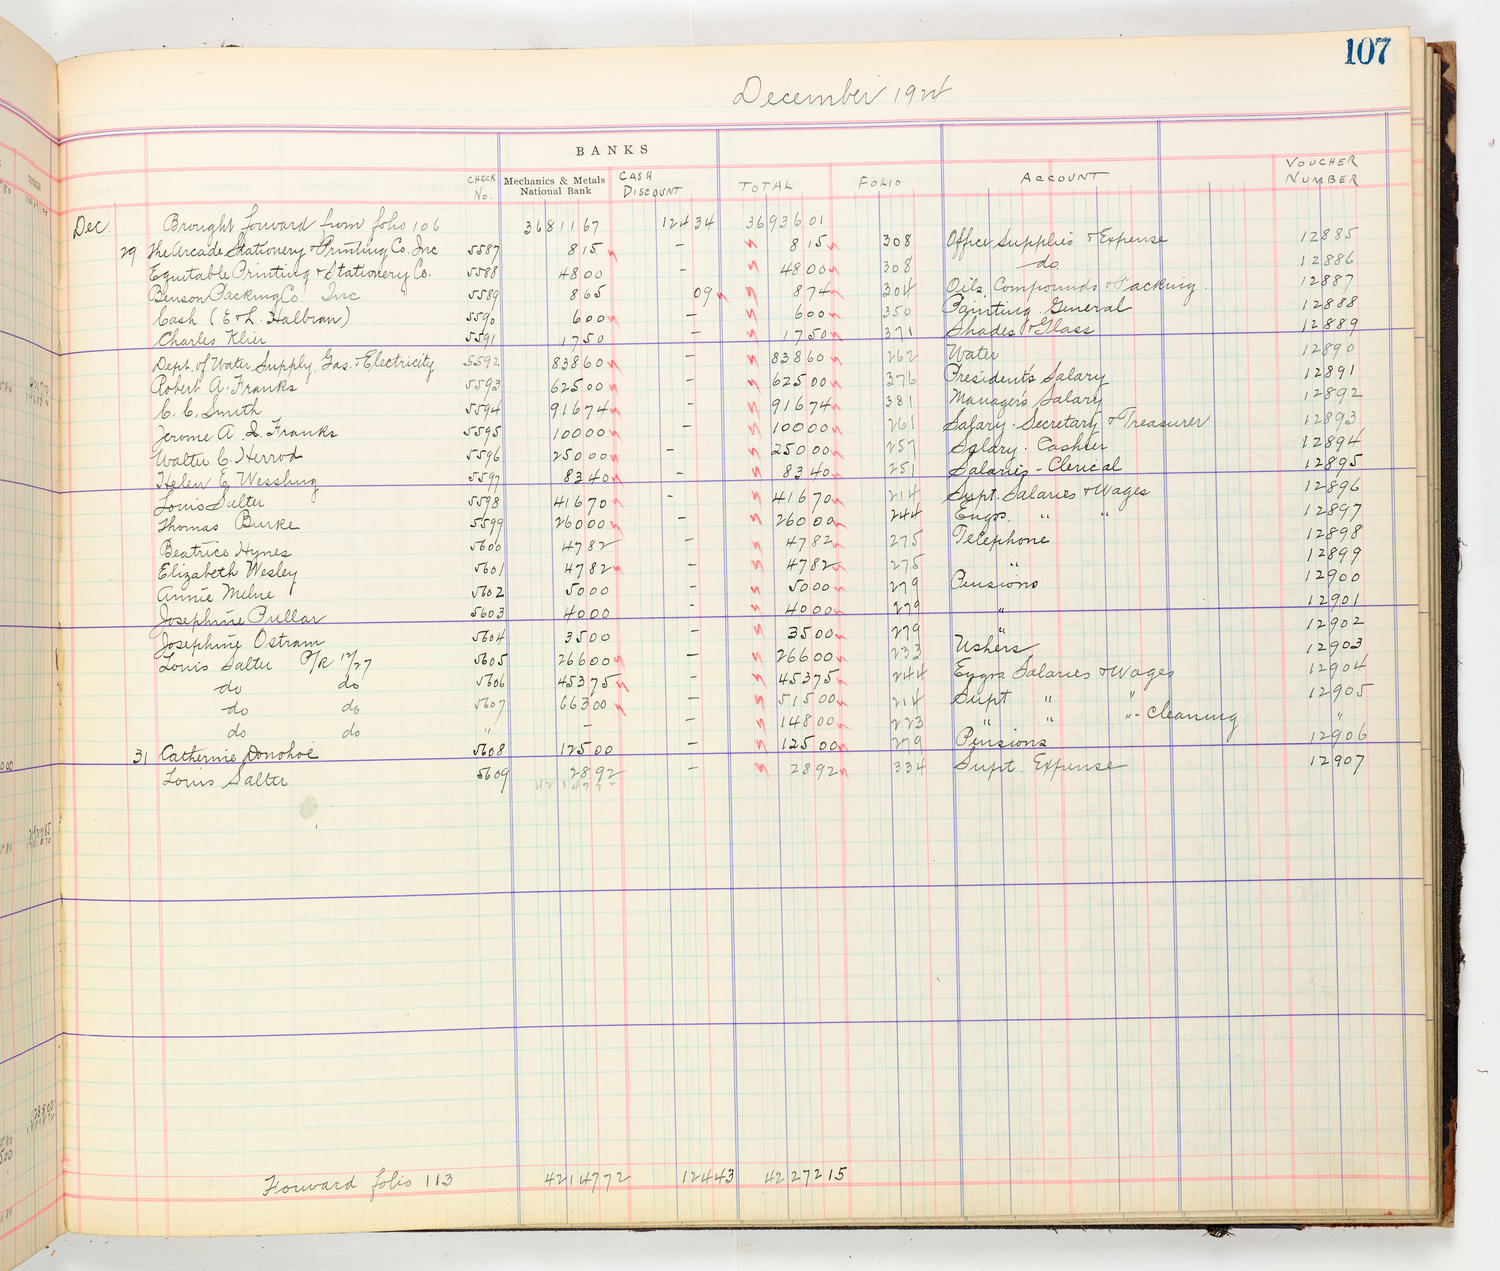 107
December 192
BANKS
CHECK No. Mechanics & Metals National Bank CASH DISCOUNT TOTAL FOLIO ACCOUNT VOUCHER NUMBER
Dec. Brought forward from folio 106 36811 67 124 34 36936 01
29 The Arcade Stationery & Printing Co. Inc 5587 8 15 – 8 15 308 Office Supplies & Expense 12885
Equitable Printing & Stationery Co. 5588 48 00 – 48 00 308 do 12886
Benson Packing Co. Inc 5589 8 65 09 8 74 304 Oils, Compounds & Packing. 12887
Cash (E & L. Halbran) 5590 6 00 – 6 00 350 Painting. General 12888
Charles Klier 5591 17 50 – 17 50 371 Shades & Glass 12889
Dept. of Water Supply, Gas. & Electricity 5592 838 60 – 838 60 262 Water 12890
Robert A. Franks 5593 625 00 – 625 00 376 President's Salary 12891
C. C. Smith 5594 916 74 – 916 74 381 Manager's Salary 12892
Jerome A. Q. Franks 5595 100 00 – 100 00 261 Salary. Secretary & Treasurer 12893
Walter C. Herrod 5596 250 00 – 250 00 257 Salary. Cashier 12894
Helen E. Wessling 5597 83 40 – 83 40 251 Salaries - Clerical 12895
Louis Salter 5598 416 70 – 416 70 214 Supt. Salaries & Wages 12896
Thomas Burke 5599 260 00 – 260 00 244 Engrs. " " 12897
Beatrice Hynes 5600 47 82 – 47 82 275 Telephone 12898
Elizabeth Wesley 5601 47 82 – 47 82 275 " 12899
Annie Milne 5602 50 00 – 50 00 279 Pensions 12900
Josephine Pullar 5603 40 00 – 40 00 279 " 12901
Josephine Ostram 5604 35 00 – 35 00 279 " 12902
Louis Salter P/R 12/27 5605 266 00 – 266 00 233 Ushers 12903
do do 5606 453 75 – 453 75 244 Engrs Salaries & Wages 12904
do do 5607 663 00 – 515 00 214 Supt " " 12905
do do " – – 148 00 223 " " " - Cleaning "
31 Catherine Donohoe 5608 125 00 – 125 00 279 Pensions 12906
Louis Salter 5609 28 92 – 28 92 334 Supt. Expense 12907
42147 72
Forward folio 113 42147 72 124 43 42272 15